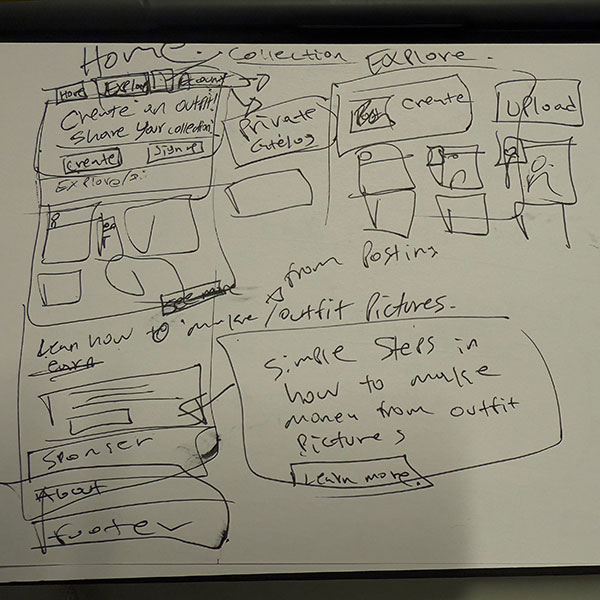 Home.
Collection
EXPlore.
Home
Explore
Account
Create an outfit!
Share Your collection
Create
Sign up
EXPlore
Private
Catelog
Create
UPload
See more
from Posting
Lean how to make outfit Pictures.
earn
Simple Steps in
how to make
money from outfit
Pictures
Learn more.
Sponser
About
footer